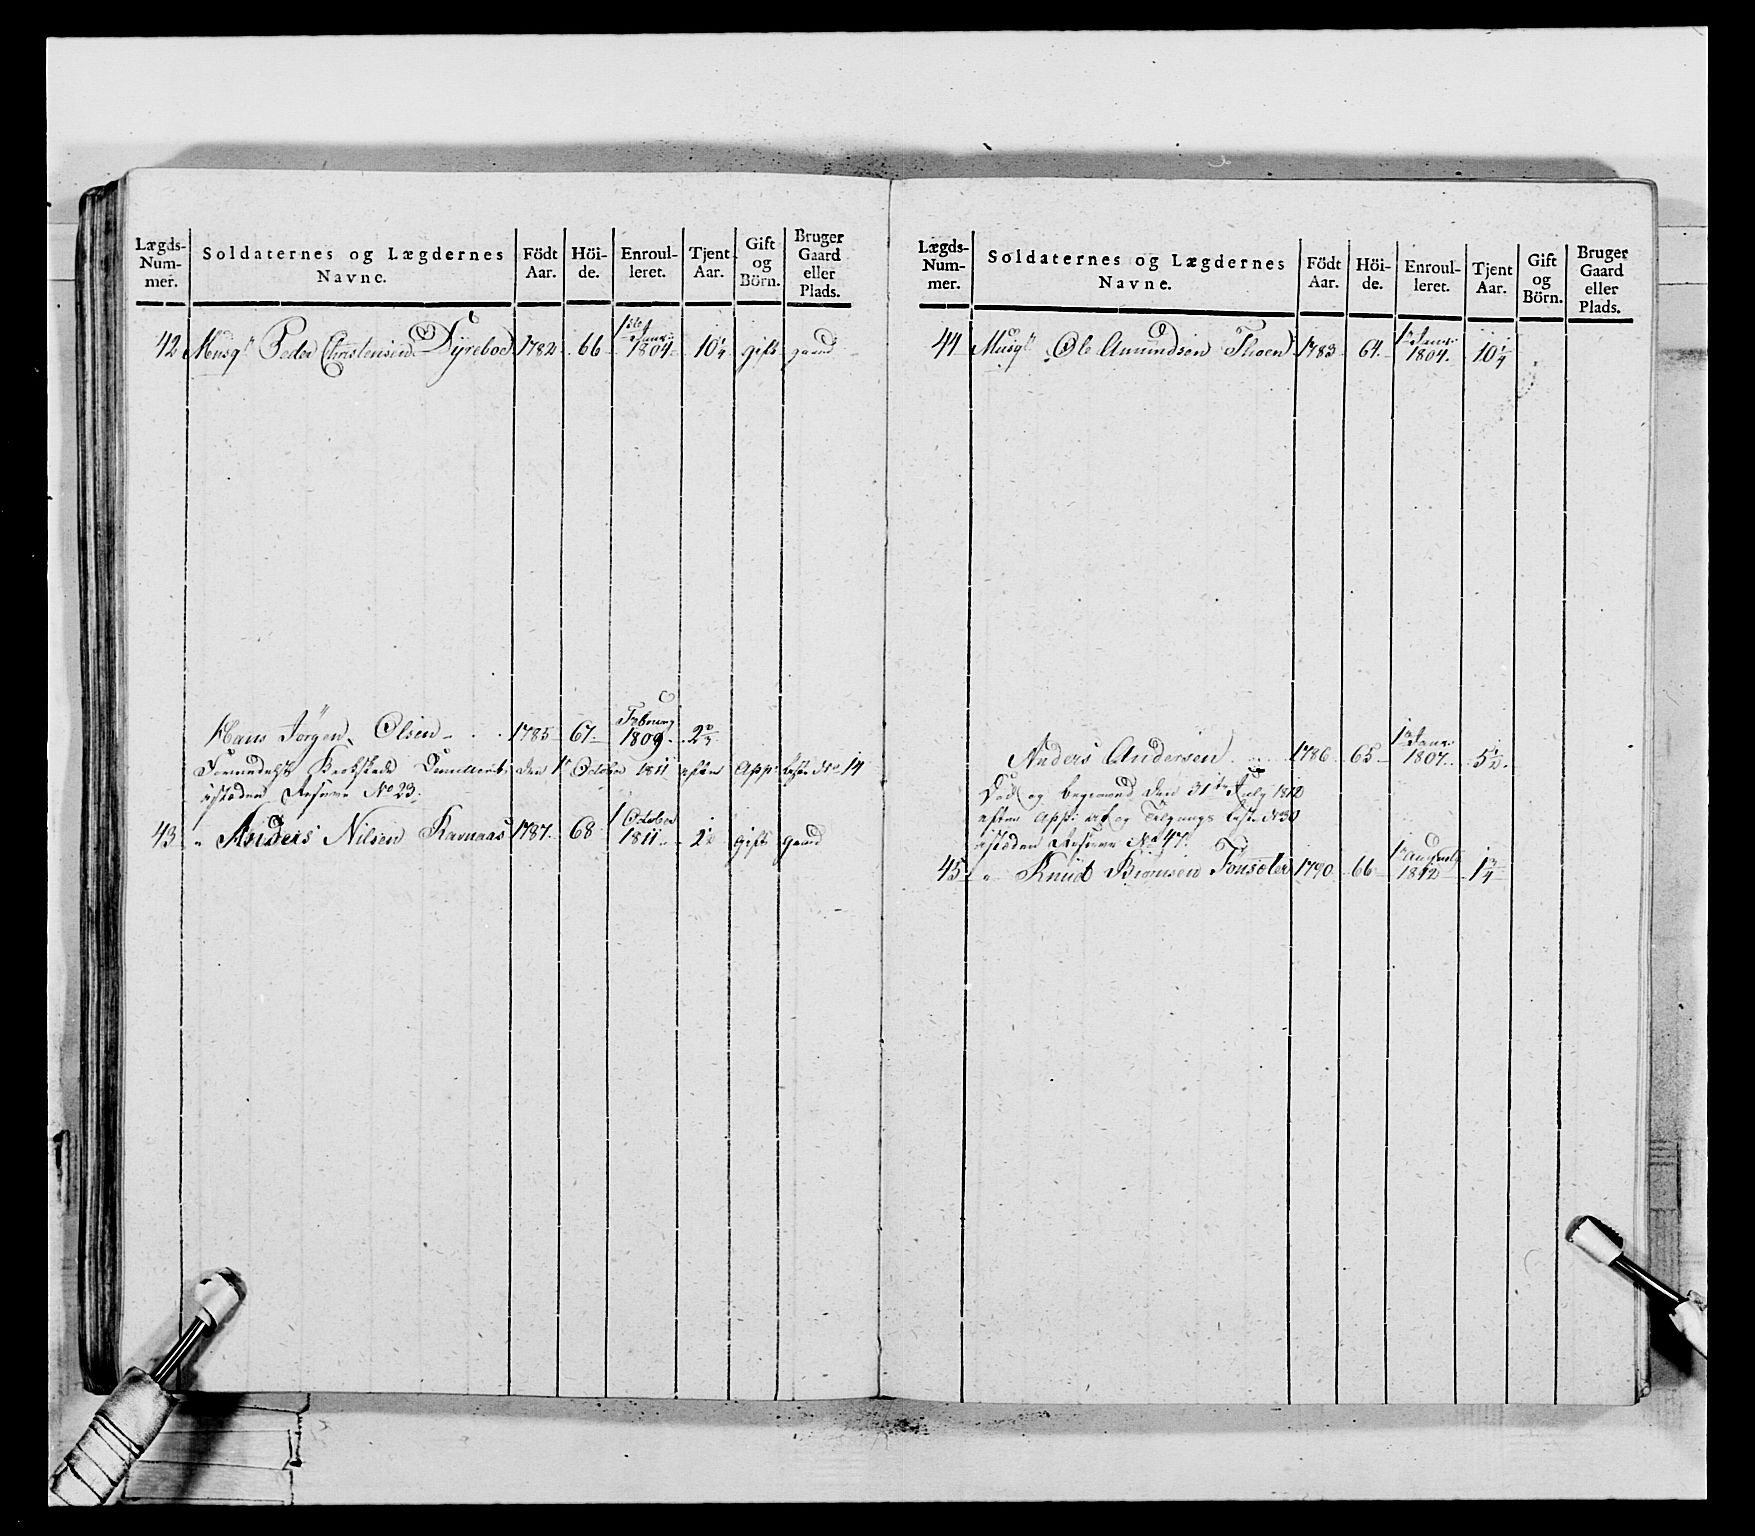 Lægds-Num-mer. Soldaternes og Lægdernes Navne. Födt Aar. Höi-de. Enroul-leret. Tjent Aar. Gift og Börn. Bruger Gaard eller Plads.
42 Musqt Peder Christensen Dyreboe 1782 66 1ste Janr 1804 10 1/4 gift gaard
Hans Jørgen Olsen 1785 67 Febuarij 1809
Kerkstæde den 1t October 1811 efter App: Liste No 14
istæden Reserve No 23.
43 " Anders Nilsen Karnaas 1787 68 1 October 1811 gift gaard
Lægds-Num-mer. Soldaternes og Lægdernes Navne. Födt Aar. Höi-de. Enroul-leret. Tjent Aar. Gift og Börn. Bruger Gaard eller Plads.
44 Musqt Ole Amundsen Thoen 1783 64 1t Janr 1804 10 1/4
Anders Andersen 1786 65 1t Janr 1807 5 1/2
Død og begraved den 31te July 1812
efter App: af og Tilgangs Liste No 30
istæden Reserve No 47.
45 " Knud Biørnsen Tonsæter 1790 66 1812 1 3/4